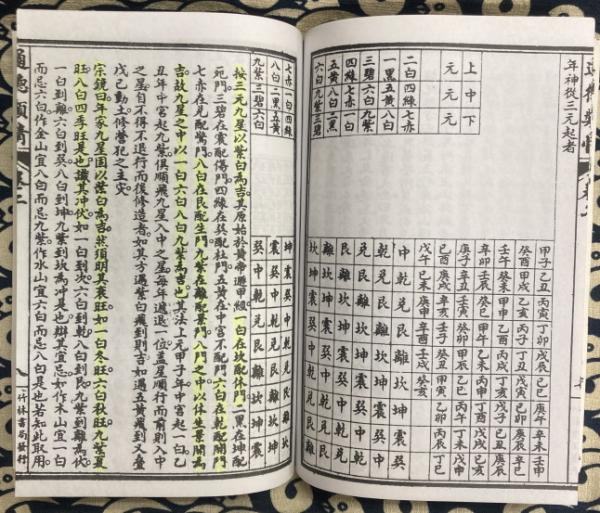 年神從三元起者
上元
中元
下元
一白四綠七赤
二黑五黄八白
三碧六白九紫
四綠七赤一白
五黄八白二黑
六白九紫三碧
甲子乙丑丙寅丁卯戊辰己巳庚午辛未壬申
癸酉甲戌乙亥丙子丁丑戊寅己卯庚辰辛巳
壬午癸未甲申乙酉丙戌丁亥戊子己丑庚寅
辛卯壬辰癸巳甲午乙未丙申丁酉戊戌己亥
庚子辛丑壬寅癸卯甲辰乙巳丙午丁未戊申
己酉庚戌辛亥壬子癸丑甲寅乙卯丙辰丁巳
戊午己未庚申辛酉壬戌癸亥
中乾兌艮離坎坤震巽
乾兌艮離坎坤震巽中
兌艮離坎坤震巽中乾
艮離坎坤震巽中乾兌
離坎坤震巽中乾兌艮
坎坤震巽中乾兌艮離
七赤一白四綠
八白二黑五黄
九紫三碧六白
坤震巽中乾兌艮離坎
震巽中乾兌艮離坎坤
巽中乾兌艮離坎坤震
按三元九星以紫白為吉其原始於黄帝遯甲經一白在坎配休門二黑在坤配
死門三碧在震配傷門四綠在巽配杜門五黄在中宮不配門六白在乾配開門
七赤在兌配驚門八白在艮配生門九紫在離配景門八門之中以休生景開為
吉故九星之中以一白六白八白九紫為吉也其法上元甲子年中宮起一白乙
丑年中宮起九紫俱順飛九星入中之星每年遞退一位蓋星順行而前則入中
之星自不得不退行而後修造者如其方遇紫白飛到則吉如遇五黄飛到又疊
戊己動土修營犯之主灾
宗鏡曰年家九星固以紫白為吉然須明其衰旺如一白冬旺六白秋旺九紫夏
旺八白四季旺是也識其冲伏如一白到坎六白到乾八白到艮九紫到離為伏
一白到離六白到巽八白到坤九紫到坎為冲是也辯其宜忌如作木山宜一白
而忌六白作金山宜八白而忌九紫作水山宜六白而忌八白是也若知此取用
通德類情
卷二
八
竹林書局發行